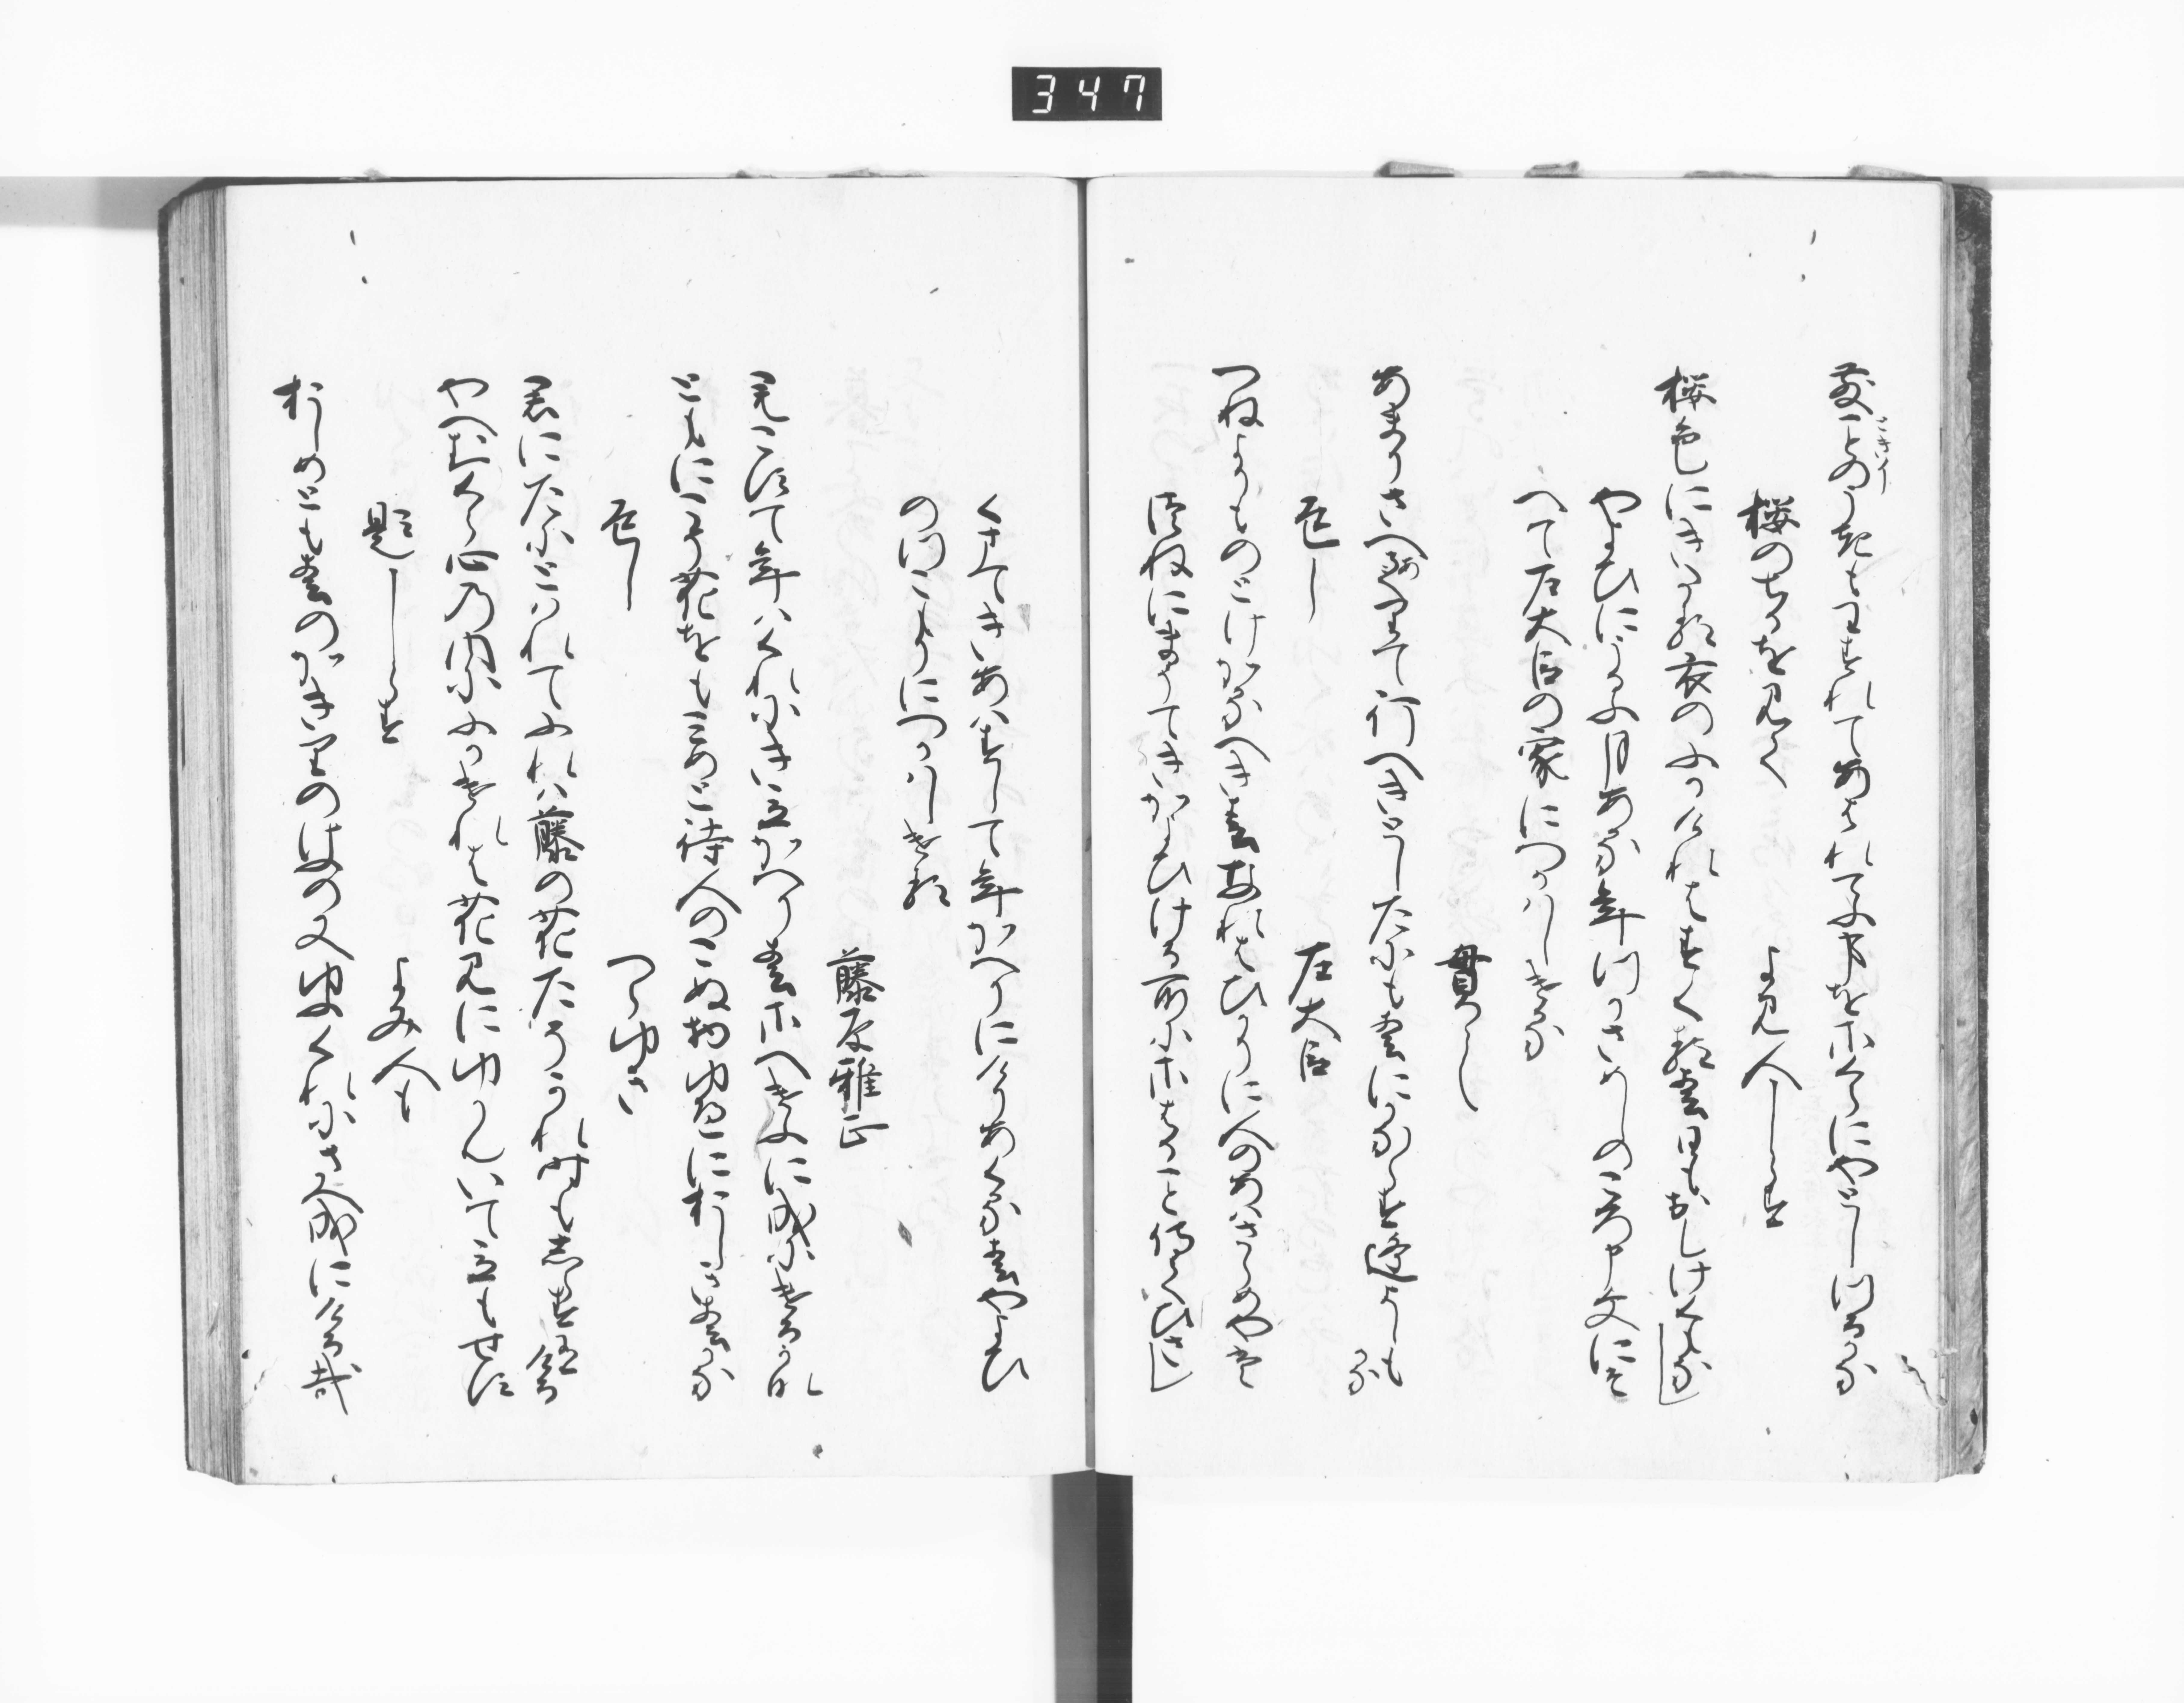 桜のちるを見て　よみ人しらす
桜色にきたる衣のふかけれはすくる春日もおしけくもなし
やよひにうるふ月ある年つかさめしのころ申文にそ
へて左大臣の家につかはしける
貫之
あまりさへありて行へきとしたにも春にかならす逢よしもかな
返し　左大臣
つねよりものとけかるへき春なれはひかりに人のあはさらめやは
つねにまうてきかよひける所にさはること侍てひさし
くまてきあはすして年かへりにけりあくる春やよひ
のつこもりにつかはしける
藤原雅正
君こすて年はくれにき立かへり春さへけふに成にけるかな
ともにこそ花をも見めと待人のこぬ物ゆゑにおしき春かな
返し　つらゆき
君にたにとはれてふれは藤の花たそかれ時も志らすそ有ける
やへむくら心の内にふかけれは花見にゆかんいて立もせす
題しらす　よみ人も
おしめとも春のかきりのけふの又ゆふくれにさへ成にける哉